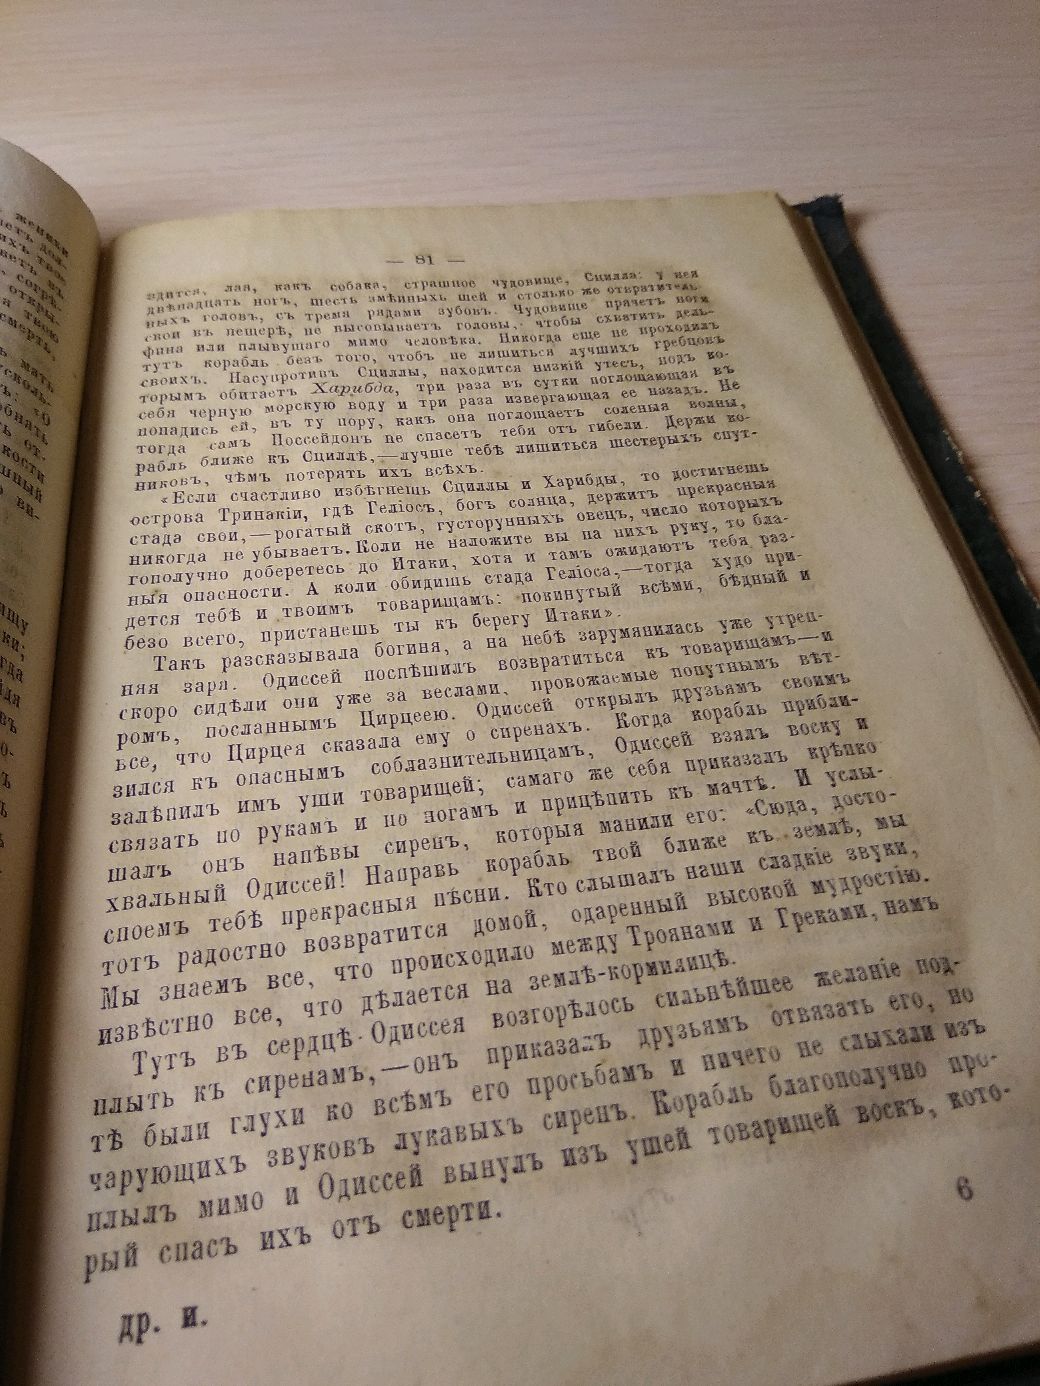 — 81 —
лая, какъ собака, страшное чудовище, Сцилла: у нея
двѣнадцать ногъ, шесть змѣиныхъ шей и столько же отвратитель-
ныхъ головъ, съ тремя рядами зубовъ. Чудовище прячетъ ноги
свои въ пещерѣ, но высовываетъ головы, чтобы схватить дель-
фина или плывущаго мимо человѣка. Никогда еще не проходилъ
тутъ корабль безъ того, чтобъ не лишиться лучшихъ гребцовъ
своихъ. Насупротивъ Сциллы, находится низкій утесъ, подъ ко-
торымъ обитаетъ Харибда, три раза въ сутки поглощающая въ
себя черную морскую воду и три раза извергающая ее назадъ. Не
попадись ей, въ ту пору, какъ она поглощаетъ соленыя волны,
тогда самъ Поссейдонъ не спасетъ тебя отъ гибели. Держи ко-
рабль ближе къ Сциллѣ,—лучше тебѣ лишиться шестерыхъ спут-
никовъ, чѣмъ потерять ихъ всѣхъ.
«Если счастливо избѣгнешь Сциллы и Харибды, то достигнешь
острова Тринакіи, гдѣ Геліосъ, богъ солнца, держитъ прекрасныя
стада свои,—рогатый скотъ, густорунныхъ овецъ, число которыхъ
никогда не убываетъ. Коли не наложите вы на нихъ руку, то бла-
гополучно доберетесь до Итаки, хотя и тамъ ожидаютъ тебя раз-
ныя опасности. А коли обидишь стада Геліоса,—тогда худо при-
дется тебѣ и твоимъ товарищамъ: покинутый всѣми, бѣдный и
безо всего, пристанешь ты къ берегу Итаки».
Такъ разсказывала богиня, а на небѣ зарумянилась уже утрен-
няя заря. Одиссей поспѣшилъ возвратиться къ товарищамъ—и
скоро сидѣли они уже за веслами, провожаемые попутнымъ вѣт-
ромъ, посланнымъ Цирцеею. Одиссей открылъ друзьямъ своимъ
все, что Цирцея сказала ему о сиренахъ. Когда корабль прибли-
зился къ опаснымъ соблазнительницамъ, Одиссей взялъ воску и
залѣпилъ имъ уши товарищей; самаго же себя приказалъ крѣпко
связать по рукамъ и по ногамъ и прицѣпить къ мачтѣ. И услы-
шалъ онъ напѣвы сиренъ, которыя манили его: «Сюда, досто-
хвальный Одиссей! Направь корабль твой ближе къ землѣ, мы
споемъ тебѣ прекрасныя пѣсни. Кто слышалъ наши сладкіе звуки,
тотъ радостно возвратится домой, одаренный высокой мудростію.
Мы знаемъ все, что происходило между Троянами и Греками, намъ
извѣстно все, что дѣлается на землѣ-кормилицѣ.
Тутъ въ сердцѣ Одиссея возгорѣлось сильнѣйшее желаніе под-
плыть къ сиренамъ,—онъ приказалъ друзьямъ отвязать его, но
тѣ были глухи ко всѣмъ его просьбамъ и ничего не слыхали изъ
чарующихъ звуковъ лукавыхъ сиренъ. Корабль благополучно про-
плылъ мимо и Одиссей вынулъ изъ ушей товарищей воскъ, кото-
рый спасъ ихъ отъ смерти.
др. и.
6